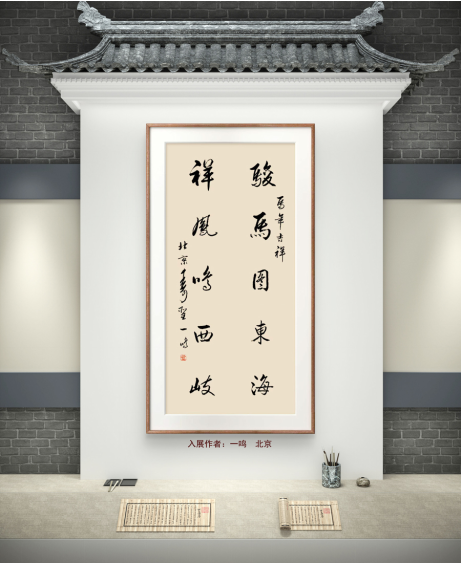 駿馬圖東海
馬年吉祥
祥鳳鳴西岐
北京 一鳴
入展作者：一鸣 北京